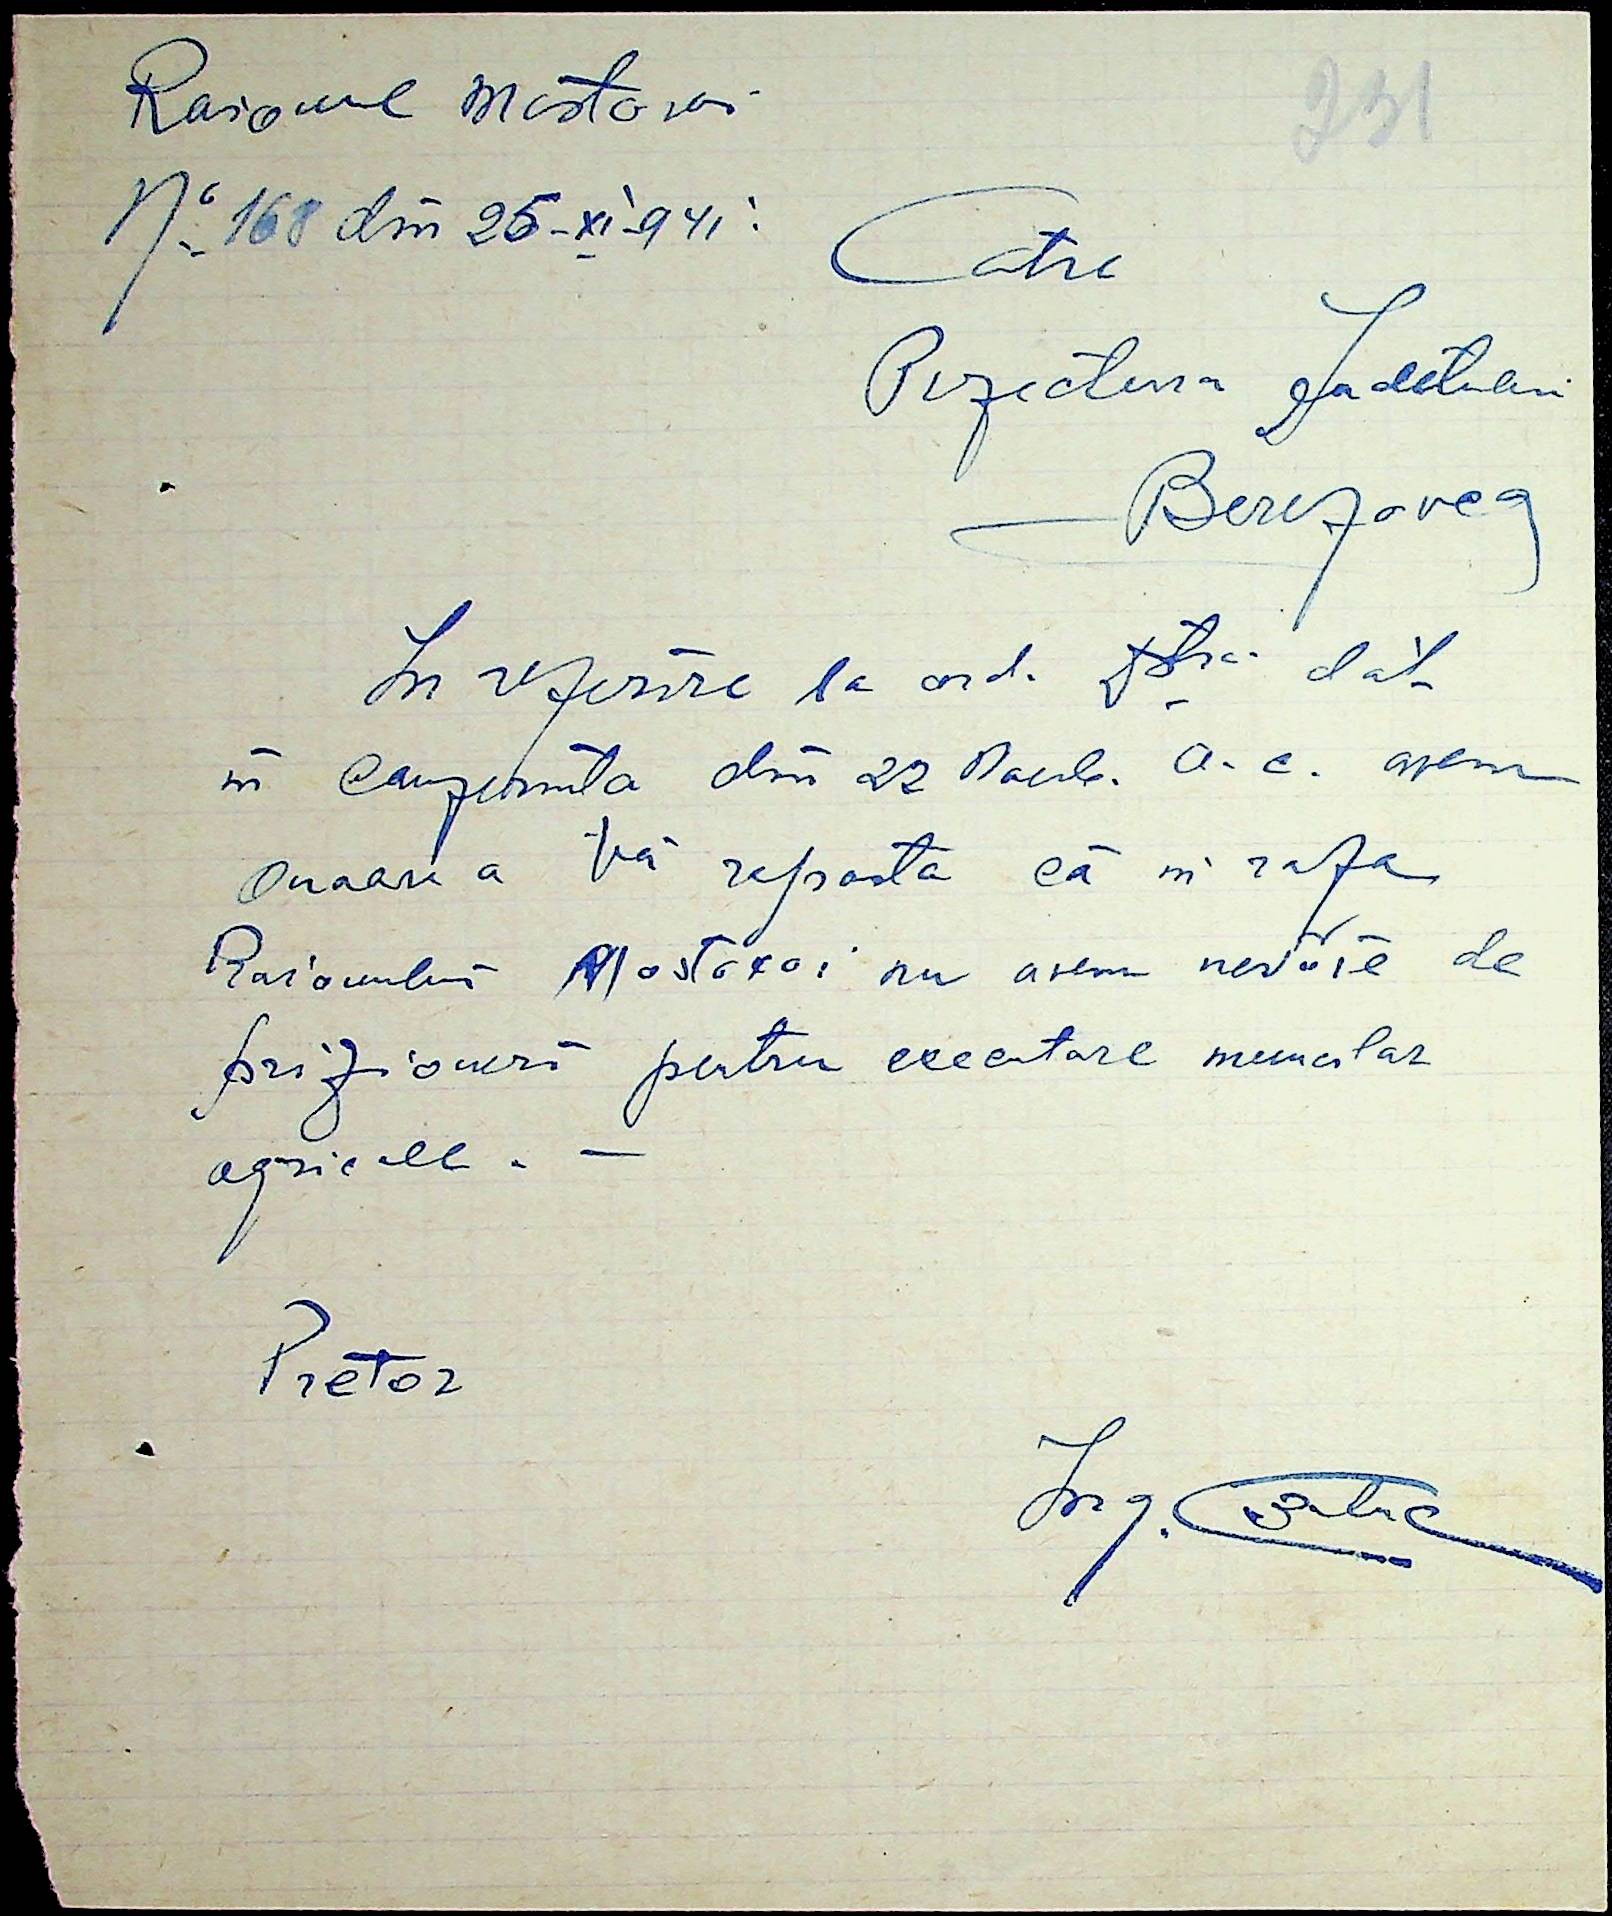 231
Raionul Mostovoi
No. 168 din 25-XI-941.
Catre
Prefectura Judetului
Berezovca
In referire la ord. Dtră dat
in conferinta din 22 Noemb. a.c. avem
onoare a vă raporta că in raza
Raionului Mostovoi nu avem nevoie de
prizoneri pentru executare muncilor
agricole. —
Pretor
Ing.